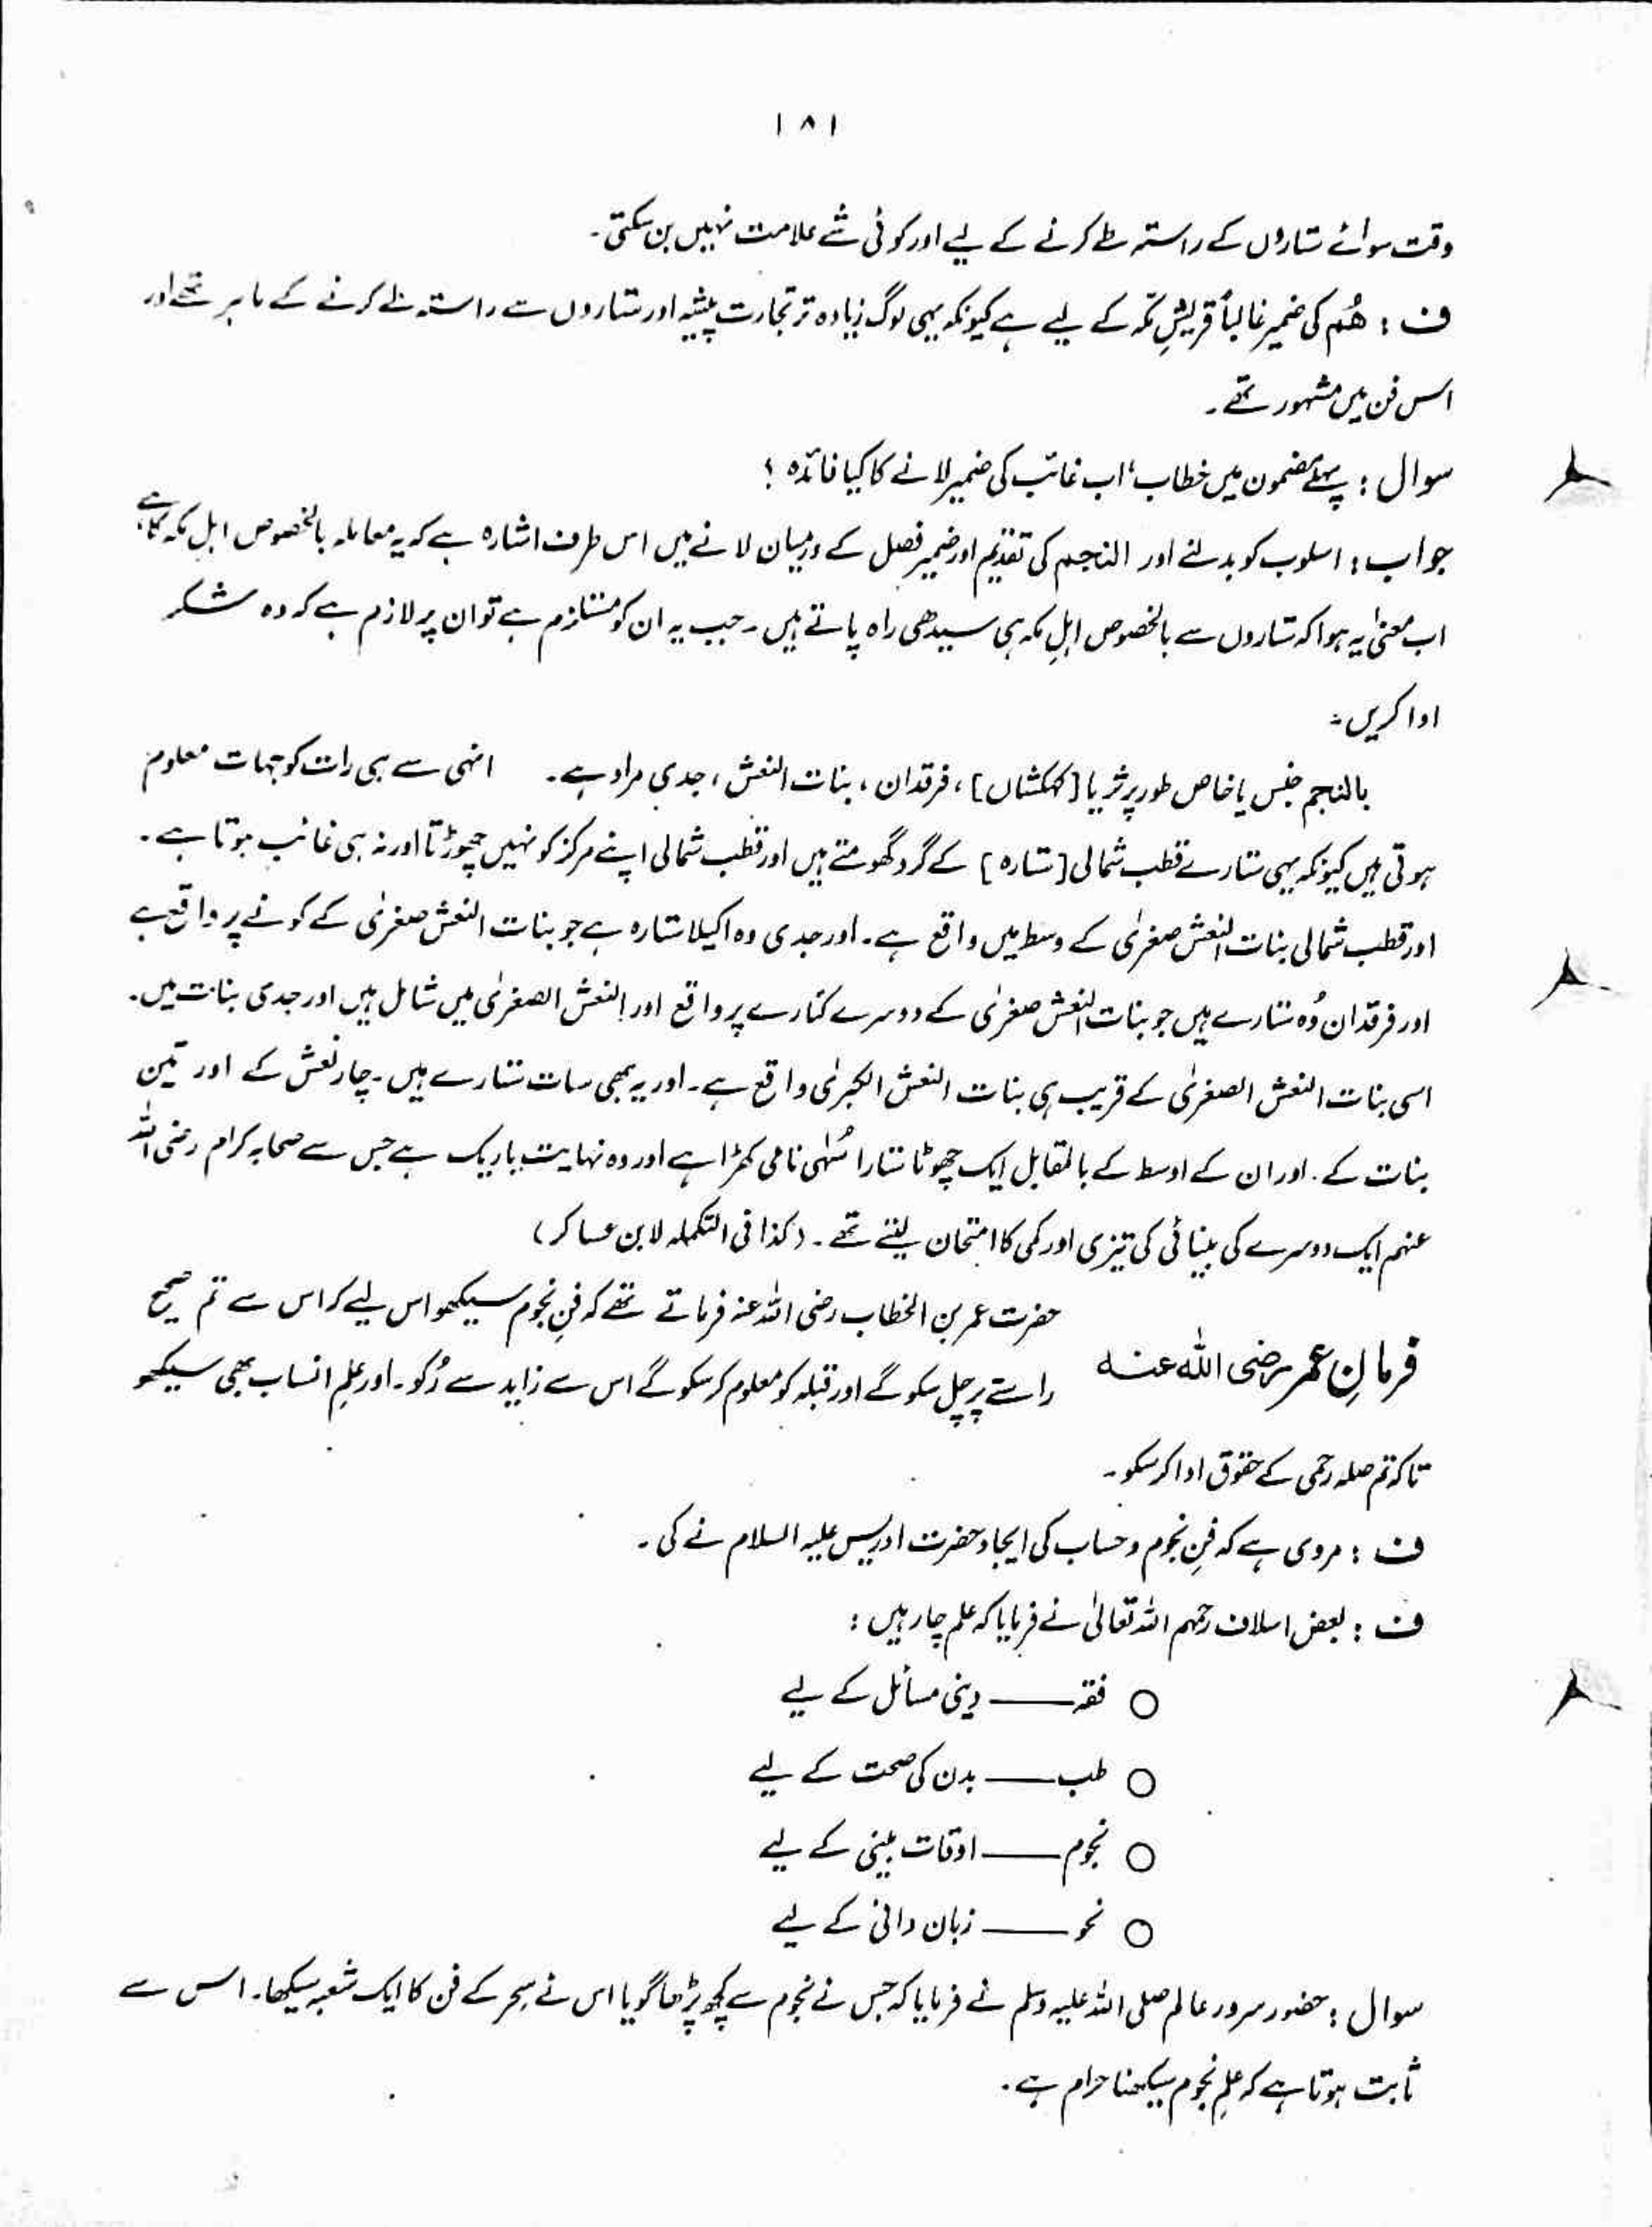 ۱۸۱
وقت سوائے ستاروں کے راستہ طے کرنے کے لیے اور کوئی شے علامت نہیں بن سکتی۔
ف : ھُم کی ضمیر غالباً قریشِ مکّہ کے لیے ہے کیونکہ یہی لوگ زیادہ تر تجارت پیشہ اور ستاروں سے راستہ طے کرنے کے ماہر تھے اور
اس فن میں مشہور تھے۔
سوال : پہلے مضمون میں خطاب، اب غائب کی ضمیر لانے کا کیا فائدہ ؟
جواب : اسلوب کو بدلنے اور النجم کی تقدیم اور ضمیر فصل کے درمیان لانے میں اس طرف اشارہ ہے کہ یہ معاملہ بالخصوص اہل مکہ کا ہے
اب معنیٰ یہ ہوا کہ ستاروں سے بالخصوص اہلِ مکہ ہی سیدھی راہ پاتے ہیں۔ جب یہ ان کو مستلزم ہے تو ان پر لازم ہے کہ وہ شکر
ادا کریں۔
بالنجم جنس یا خاص طور پر ثریا [کہکشاں]، فرقدان، بنات النعش، جدی مراد ہے۔ انہی سے ہی رات کو جہات معلوم
ہوتی ہیں کیونکہ یہی ستارے قطب شمالی [ستارہ] کے گرد گھومتے ہیں اور قطب شمالی اپنے مرکز کو نہیں چھوڑتا اور نہ ہی غائب ہوتا ہے۔
اور قطب شمالی بنات النعش صغریٰ کے وسط میں واقع ہے۔ اور جدی وہ اکیلا ستارہ ہے جو بنات النعش صغریٰ کے کونے پر واقع ہے
اور فرقدان وُہ ستارے ہیں جو بنات النعش صغریٰ کے دوسرے کنارے پر واقع اور النعش الصغریٰ میں شامل ہیں اور جدی بنات میں۔
اسی بنات النعش الصغریٰ کے قریب ہی بنات النعش الکبریٰ واقع ہے۔ اور یہ بھی سات ستارے ہیں۔ چار نعش کے اور تین
بنات کے۔ اور ان کے اوسط کے بالمقابل ایک چھوٹا ستارا سُہٰی نامی کھڑا ہے اور وہ نہایت باریک ہے جس سے صحابہ کرام رضی اللہ
عنہم ایک دوسرے کی بینائی کی تیزی اور کمی کا امتحان لیتے تھے۔ (کذا فی التکملہ لابن عساکر)
فرمانِ عمر رضی اللہ عنہ
حضرت عمر بن الخطاب رضی اللہ عنہ فرماتے تھے کہ فنِ نجوم سیکھو اس لیے کہ اس سے تم صحیح
راستے پر چل سکو گے اور قبلہ کو معلوم کر سکو گے اس سے زاید سے رُکو۔ اور علمِ انساب بھی سیکھو
تاکہ تم صلہ رحمی کے حقوق ادا کر سکو۔
ف : مروی ہے کہ فنِ نجوم و حساب کی ایجاد حضرت ادریس علیہ السلام نے کی۔
ف : بعض اسلاف رحمہم اللہ تعالیٰ نے فرمایا کہ علم چار ہیں :
○ فقہ —— دینی مسائل کے لیے
○ طب —— بدن کی صحت کے لیے
○ نجوم —— اوقات بینی کے لیے
○ نحو —— زبان دانی کے لیے
سوال : حضور سرور عالم صلی اللہ علیہ وسلم نے فرمایا کہ جس نے نجوم سے کچھ پڑھا گویا اس نے سحر کے فن کا ایک شعبہ سیکھا۔ اس سے
ثابت ہوتا ہے کہ علمِ نجوم سیکھنا حرام ہے۔